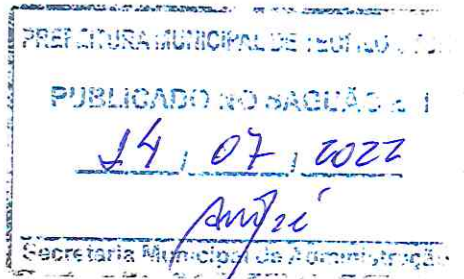 PREFEITURA MUNICIPAL DE TEÓFILO
PUBLICADO NO SAGUÃO
14 / 07 / 2022
André
Secretaria Municipal de Administração